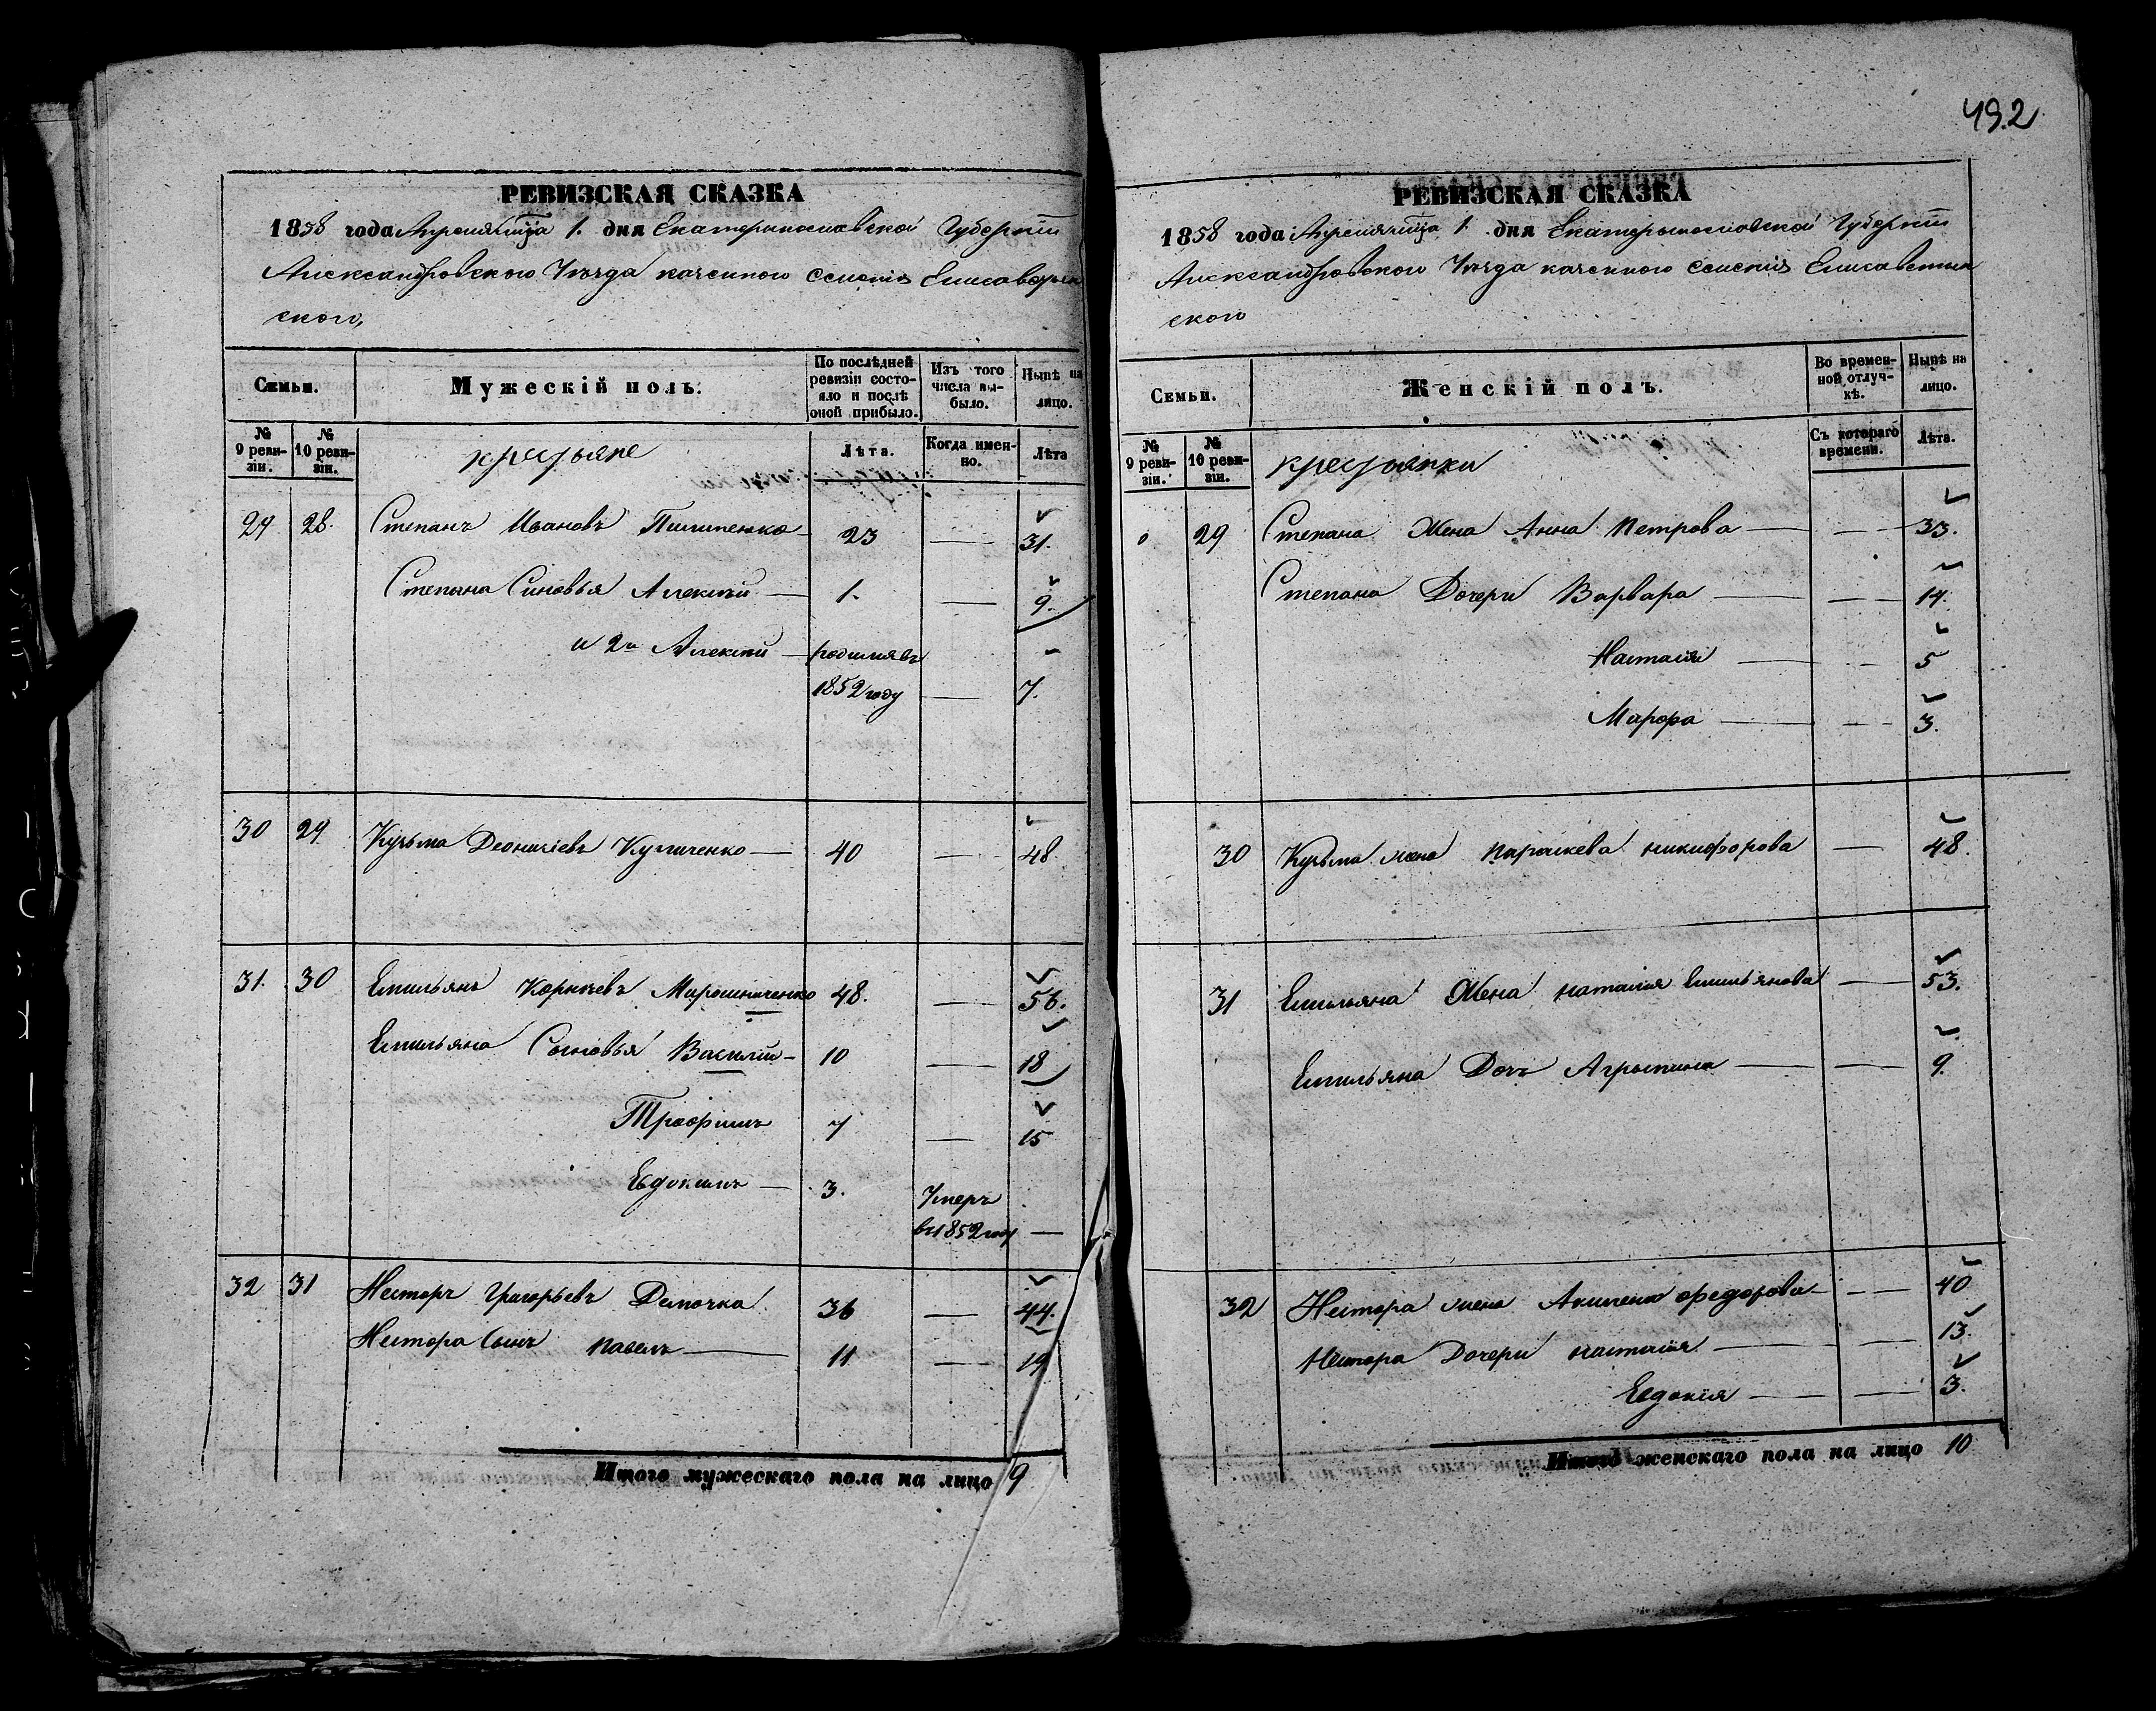 49.2
РЕВИЗСКАЯ СКАЗКА
1858 года Апреля 1. дня Екатеринославской Губерніи
Александровского Уезда казенного селенія
ского,
Семьи. Мужескій полъ. По послѣдней ревизіи состояло и послѣ оной прибыло. Изъ того числа выбыло. Нынѣ на лицо.
№ 9 ревизіи. № 10 ревизіи. крестьяне Лѣта. Когда именно. Лѣта
29 28. Степанъ Ивановъ Пилипенко 23 — 31.
Степана Синовья Алексѣй — 1. — 9.
и 2й Алексѣй — родился въ
1852 году — 7.
30 29 Кузьма Куличенко — 40 — 48.
31. 30 Емильянъ Корнѣевъ Мирошниченко 48. — 56.
Емильяна Сыновья Василій — 10 — 18
Трофимъ 7 — 15
Евдокимъ — 3. Умеръ
в 1852 году —
32 31 Несторъ Григорьевъ Демочка 36 — 44.
Нестора Сынъ Павелъ — 11 — 19
Итого мужескаго пола на лицо 9
РЕВИЗСКАЯ СКАЗКА
1858 года Апреля 1. дня Екатеринославской Губерніи
Александровского Уезда казенного селенія Елисаветин
ского
Семьи. Женскій полъ. Во временной отлучкѣ. Нынѣ на лицо.
№ 9 ревизіи. № 10 ревизіи. крестьянки Съ котораго времени. Лѣта.
29 Степана Жена Анна Петрова — — 33.
Степана Дочери Варвара — — 14.
Настасія — — 5
Марфа — — 3.
30 Кузьма жена Параскева Никифорова — 48.
31 Емильяна Жена Наталия Емильянова — 53.
Емильяна Дочь Агрыпина — — 9.
32 Нестора жена Акилена Федорова — — 40
Нестора Дочери Настасія — — 13.
Евдокія — — 3.
Итого женскаго пола на лицо 10